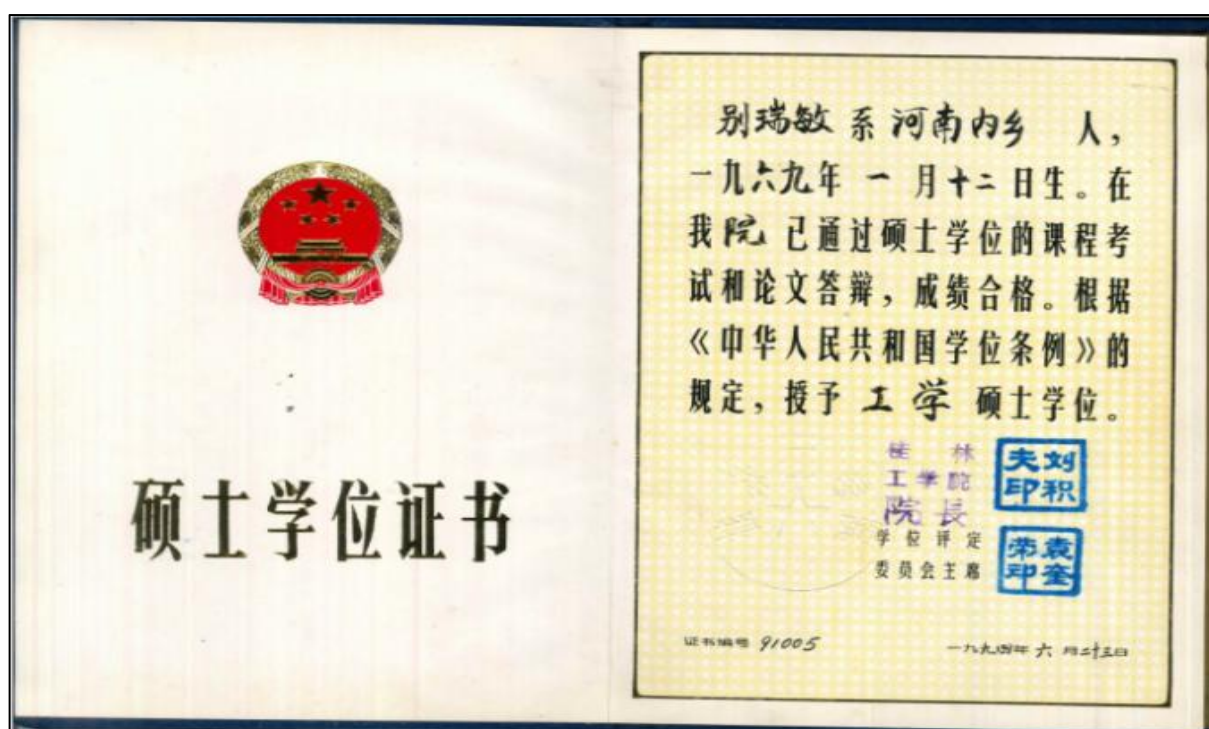 硕士学位证书
别瑞敏 系 河南内乡 人，
一九六九年 一 月十二日生。在
我院 已通过硕士学位的课程考
试和论文答辩，成绩合格。根据
《中华人民共和国学位条例》的
规定，授予 工学 硕士学位。
桂林
工学院
院長
学位评定
委员会主席
刘积
夫印
袁奎
荣印
证书编号 91005
一九九四年 六 月二十三日